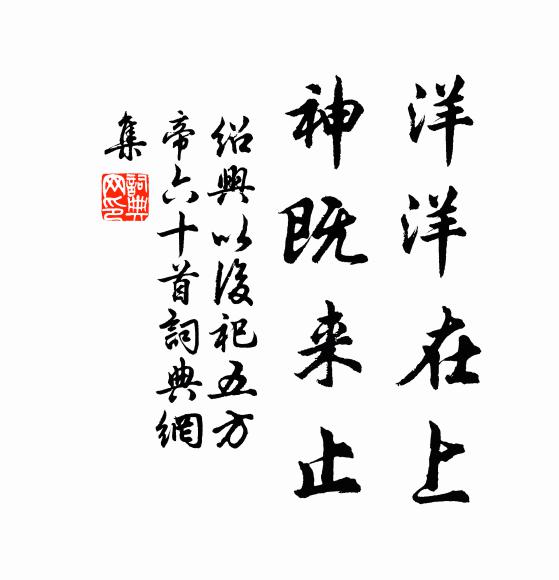 洋洋在上
神既来止
紹興以後祀五方
帝六十首詞典網
集
詞典
网印